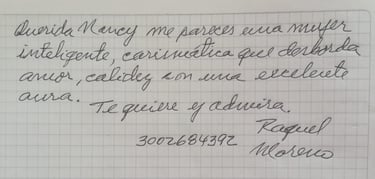 Querida Nancy me pareces una mujer
inteligente, carismática que desborda
amor, calidez con una excelente
aura.
Te quiere y admira.
Raquel
3002684392 Moreno